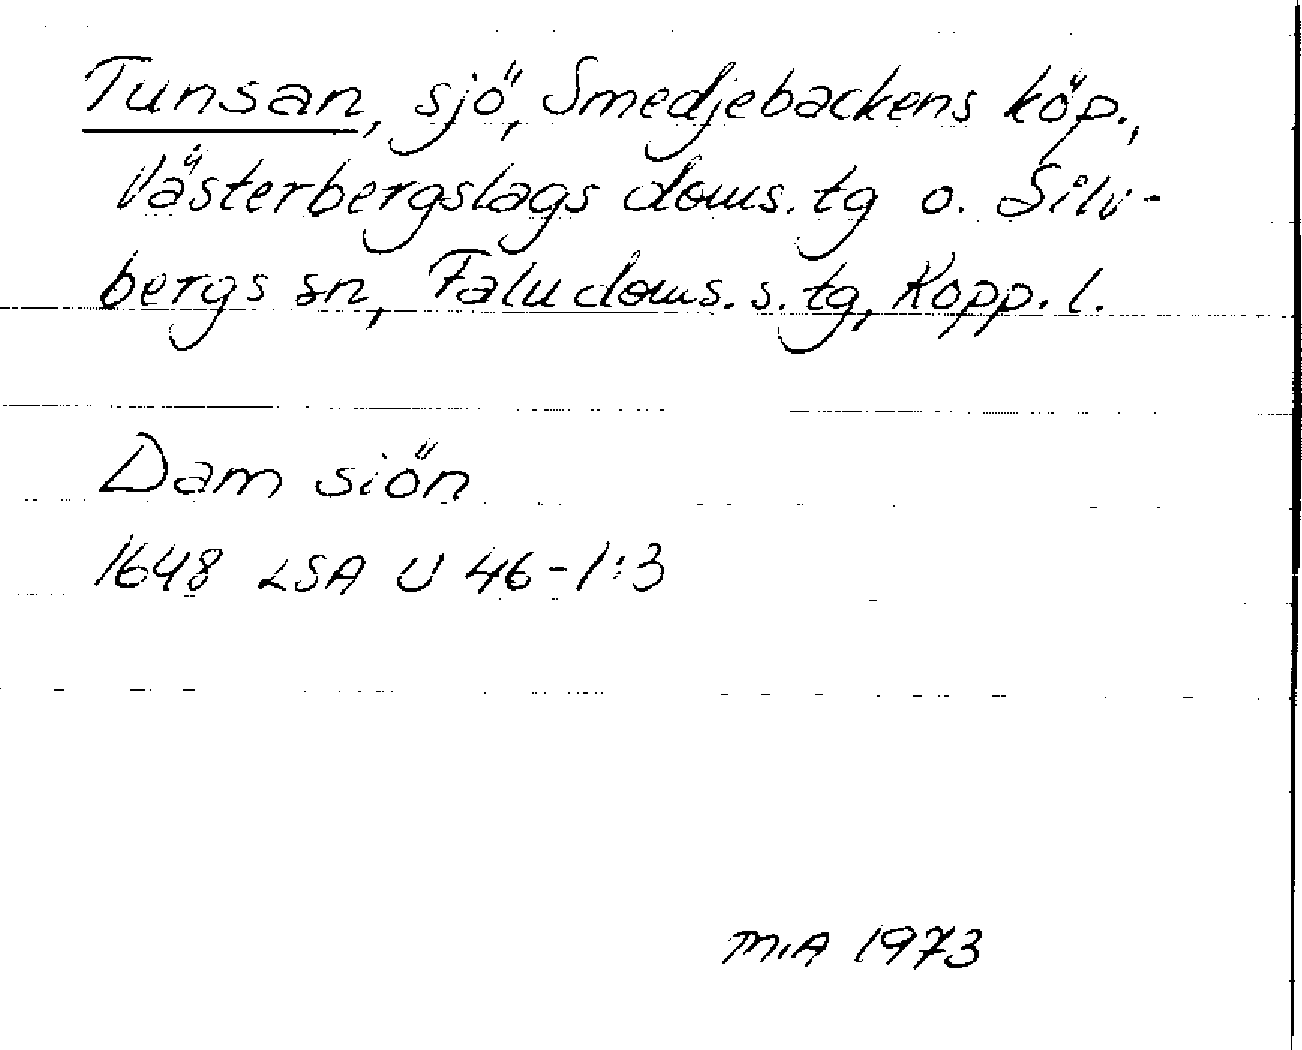 Tunsan, sjö, Smedjebackens köp.,
Västerbergslags doms. tg o. Silv-
bergs sn, Falu doms. s. tg, Kopp. l.
Dam siön
1648 LSA U 46-1:3
M.A 1973